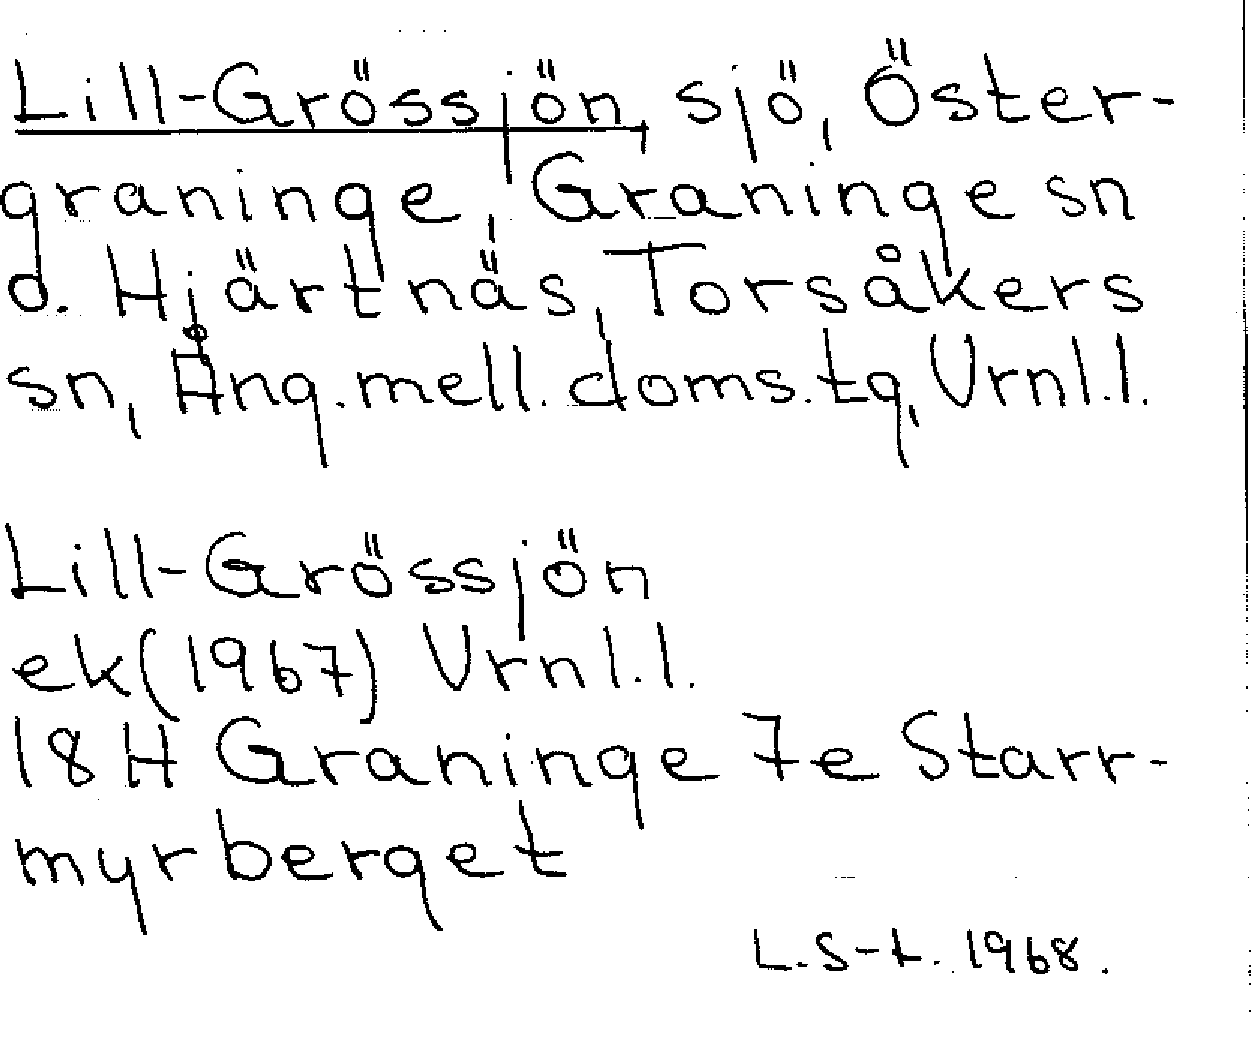 Lill-Grössjön, sjö, Öster-
graninge, Graninge sn
o. Hjärtnäs, Torsåkers
sn, Ång. mell. doms. tg, Vrnl.l.
Lill-Grössjön
ek (1967) Vrnl.l.
18H Graninge 7e Starr-
myrberget
L.S-t. 1968.